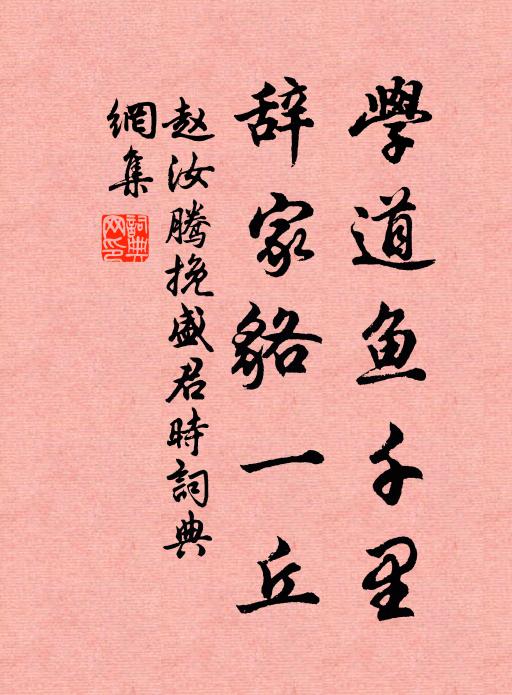 學道鱼千里
辞家貉一丘
赵汝腾挽盛君時詞典
網集
詞典网印